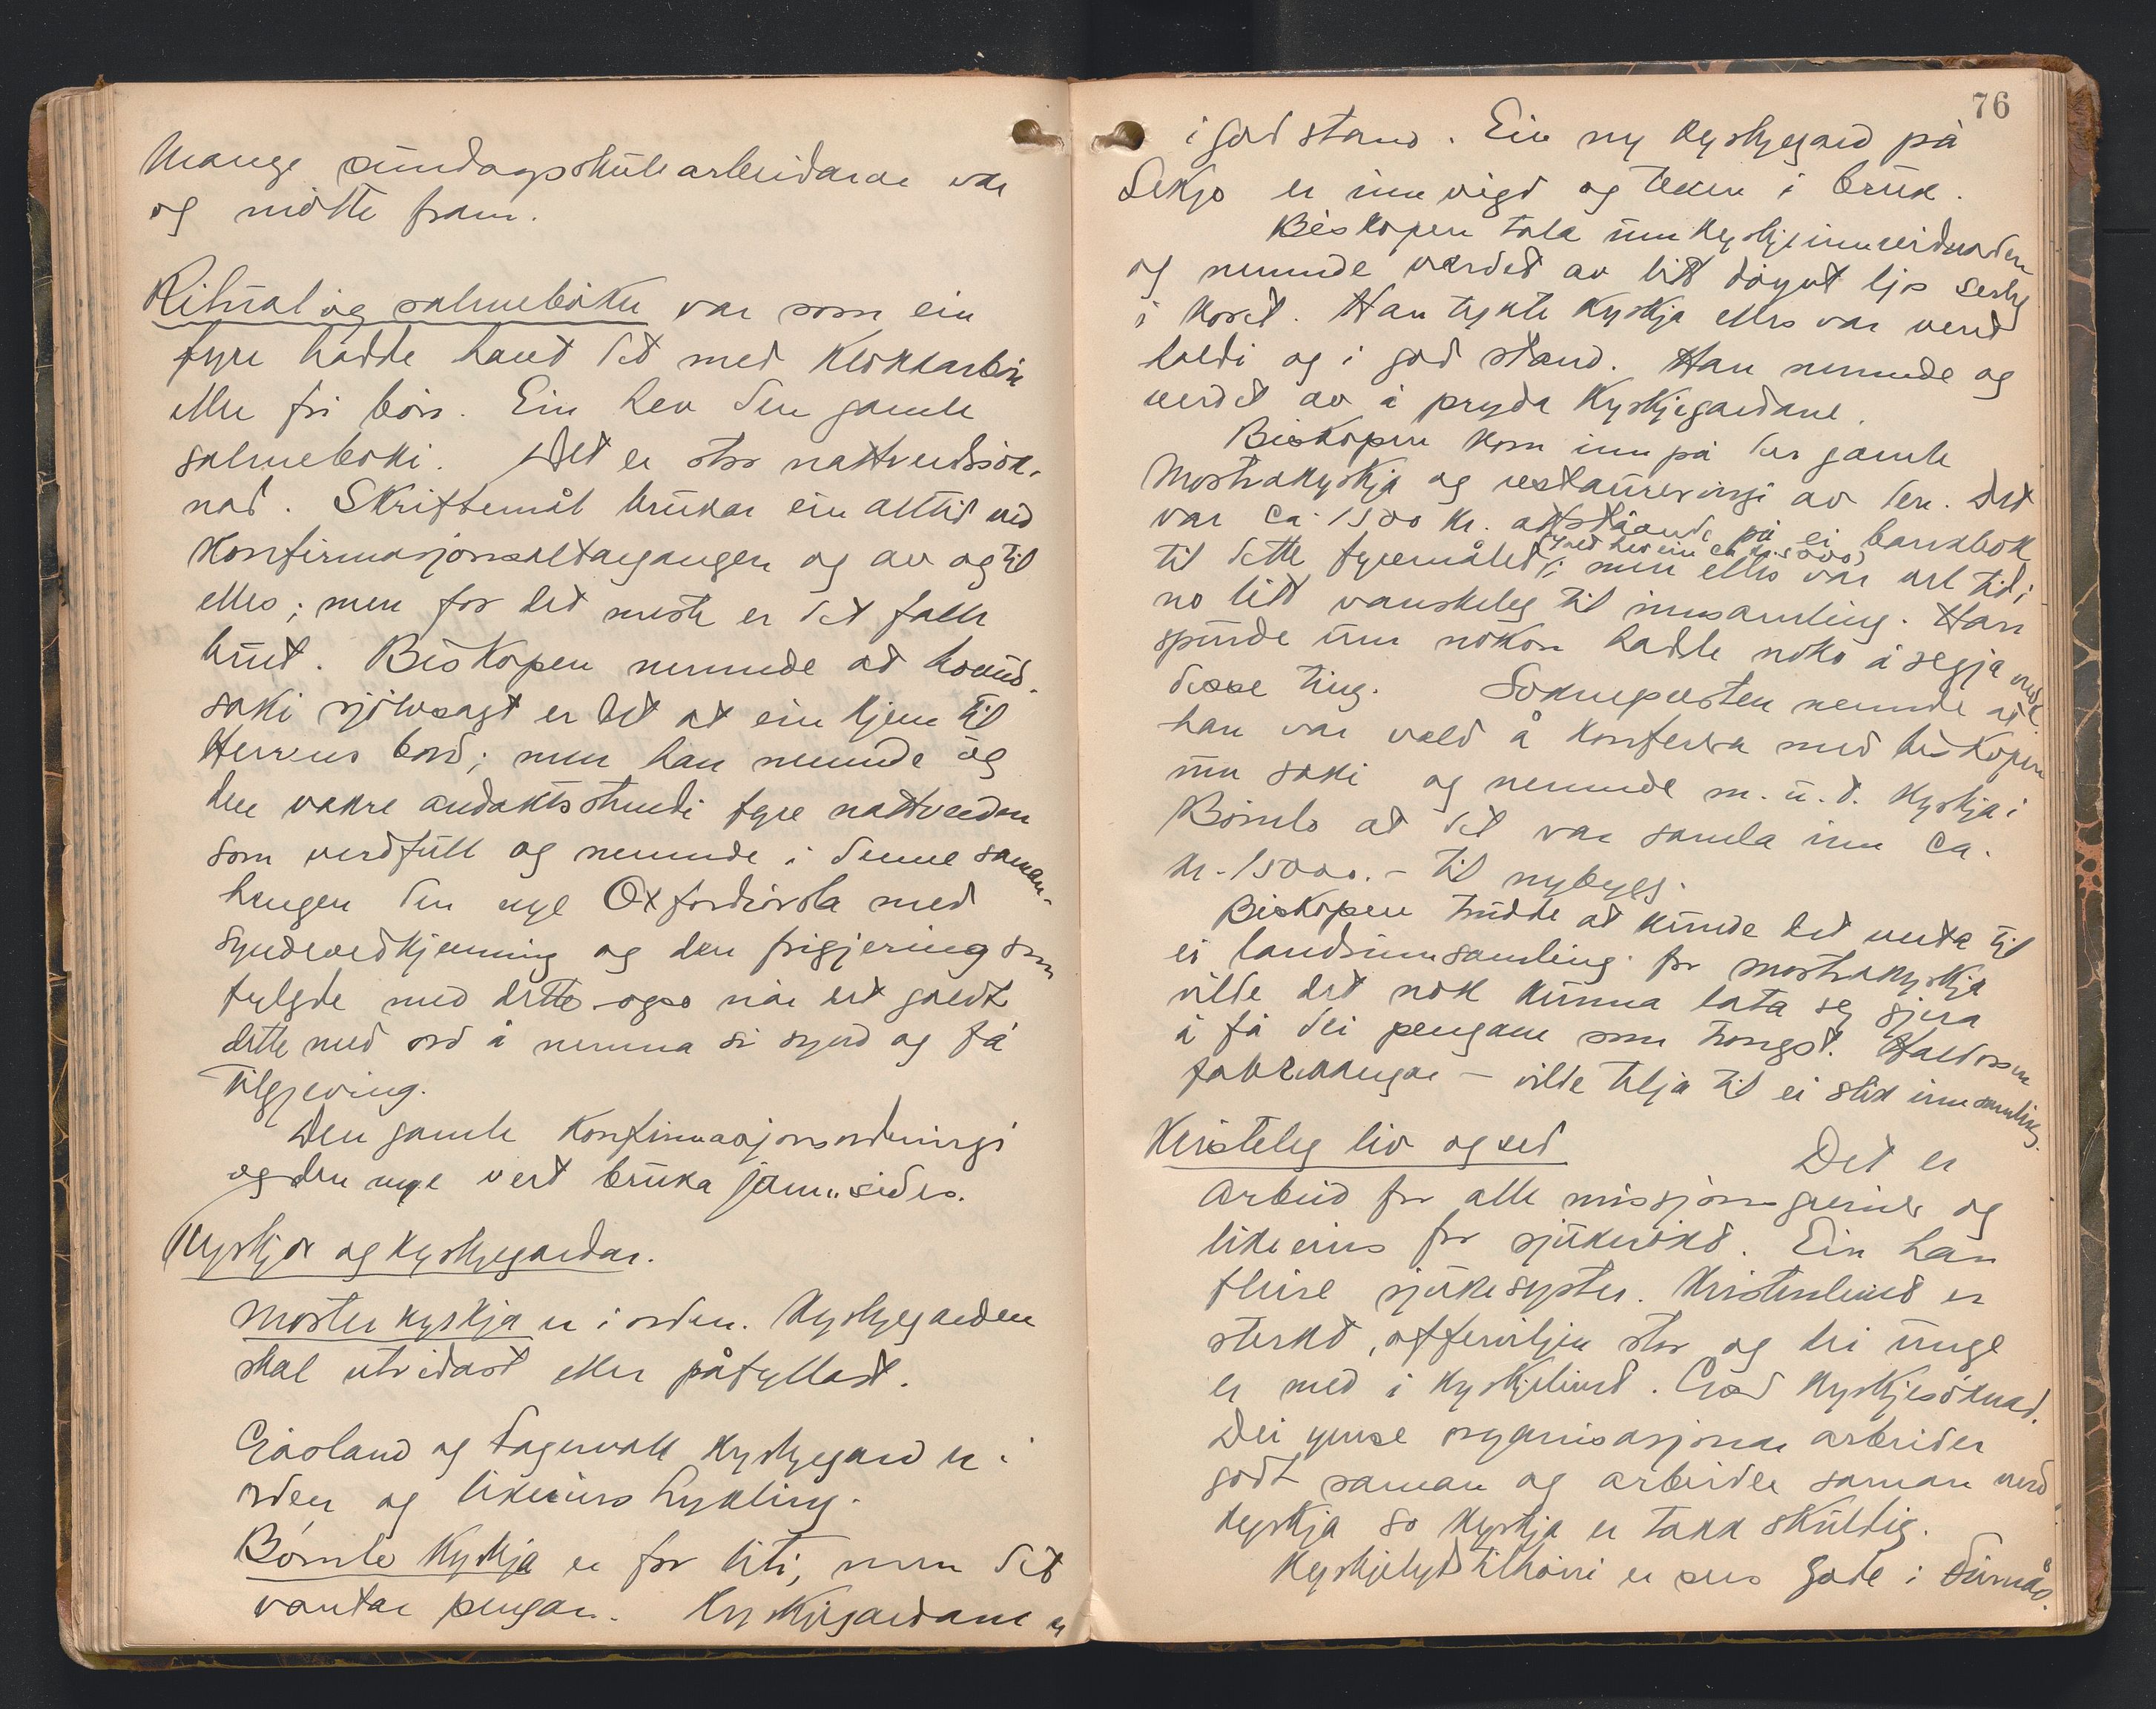 Mange sundagsskulearbeidarar var
og møtte fram.
Ritual og salmebøker var som ein
fyrr hadde havt det med klokkarbøn
eller fri bøn. Ein hev den gamle
salmeboki. Det er stor nattverdsøk-
nad. Skriftemål brukar ein alltid ved
konfirmasjonsaltargangen og av og til
elles; men for det meste er det falle
burt. Biskopen nemnde at hovud-
saki sjølvsagt er det at ein kjem til
Herrens bord; men han nemnde og
den vakre andaktsstundi fyre nattverden
som verdfull og nemnde i denne saman-
hengen den nye Oxfordrørsla med
syndevedkjenning og den frigjering som
fylgde med dette også når det galdt
dette med ord å nemna si synd og få
tilgjeving.
Den gamle konfirmasjonsordningi
og den nye vert bruka jamsides.
Kyrkjor og kyrkjegardar.
Moster kyrkja er i orden. Kyrkjegarden
skal utvidast eller påfyllast.
Gåsland og Fagervoll kyrkjegard er i
orden og likeeins Lykling.
Bømlo kyrkja er for liti, men det
vantar pengar. Kyrkjegardane er
76
i god stand. Ein ny kyrkjegard på
Sekse er innvigd og teken i bruk.
Biskopen tala um kyrkjeinnreidnaden
og nemnde verdet av litt døyvt ljos serleg
i koret. Han tykte kyrkja elles var vent
haldi og i god stand. Han nemnde og
verdet av å pryda kyrkjegardane.
Biskopen kom inn på den gamle
Mostrakyrkja og restaureringi av den. Det
var ca. 1500 kr. attståande på ei bankbok
til dette fyremålet; men elles var det tid i
no litt vanskeleg til innsamling. Han
spurde um nokon hadde noko å segja ved
desse ting. Soknepresten nemnde at
han var vald å konferera med biskopen
um saki og nemnde m.u.t. kyrkja i
Bømlo at det var samla inn ca.
kr. 15000.- til nybygg.
Biskopen trudde at kunde det verta til
ei landsinnsamling for mostrakyrkja
vilde det nok kunna lata seg gjera
å få dei pengane som trongst. Haldorsen
fabrikkeigar – vilde tilja til ei slik innsamling.
Kristeleg liv og sed Det er
arbeid for alle missjonsgreiner og
likeeins for sjukerøkt. Ein har
fleire sjukesyster. Kristenlivet er
sterkt, offerviljen stor og dei unge
er med i kyrkjelivet. God kyrkjesøknad.
Dei ymse organisasjonar arbeider
godt saman og arbeider saman med
kyrkja so kyrkja er takk skuldig.
Kyrkjelydstilhøvi er sers gode i